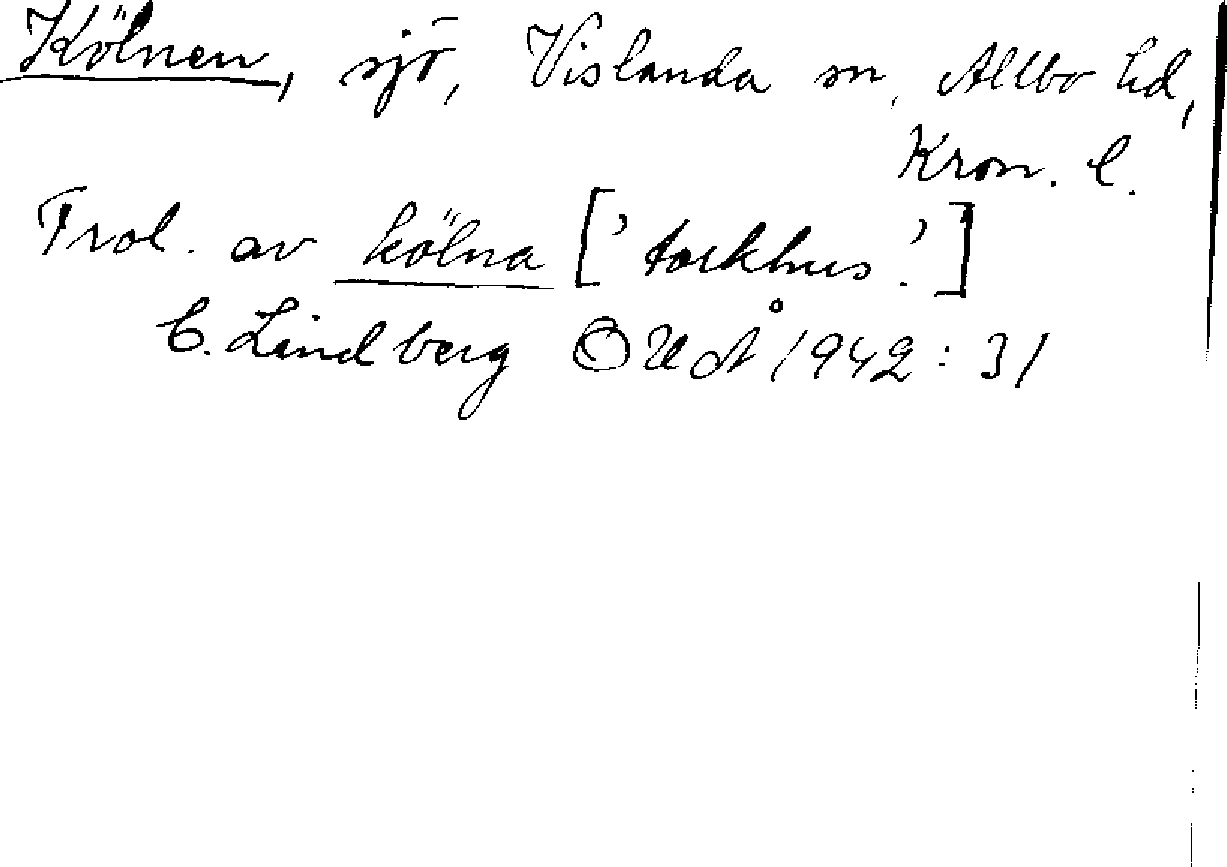 Kölnen, sjö, Vislanda sn, Allbo hd,
Kron. l.
Trol. av kölna ['torkhus.']
C. Lindberg OUÅ 1942: 31